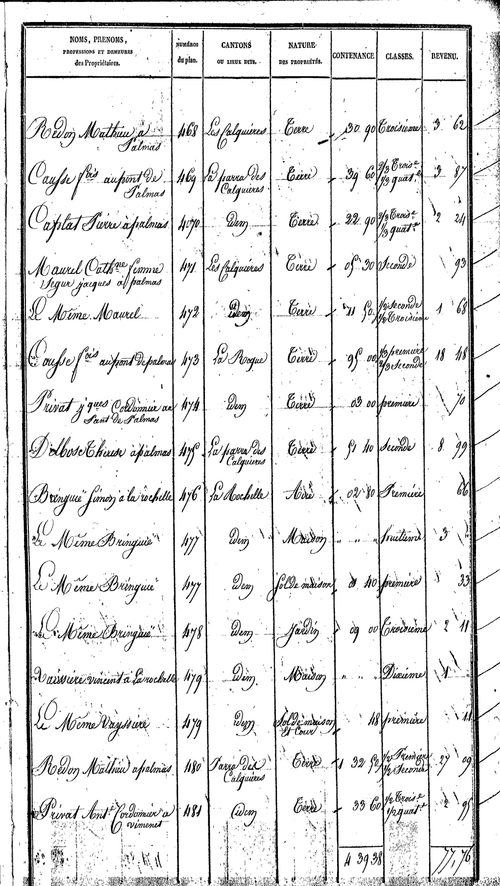 NOMS, PRENOMS, PROFESSIONS ET DEMEURES des Propriétaires. | NUMÉROS du plan. | CANTONS OU LIEUX DITS. | NATURE DES PROPRIÉTÉS. | CONTENANCE | CLASSES. | REVENU.
Redon Mathieu à Palmas 468 Les Calquieres Terre 30 90 Troisieme 3 62
Causse fois au pont de Palmas 469 La parra des Calquieres Terre 39 60 2/3 Trois.e 1/3 quat.e 3 87
Caplat Pierre à palmas 470 idem Terre 22 90 2/3 Trois.e 1/3 quat.e 2 24
Maurel Cathne femme Segur jacques à palmas 471 Les Calquieres Terre 05 30 Seconde 93
Le Même Maurel 472 idem Terre 11 50 1/2 seconde 1/2 Troisieme 1 68
Causse fois au pont de palmas 473 La Roque Terre 95 00 1/3 premiere 2/3 seconde 18 48
Privat jques Cordonier au Pont de Palmas 474 idem Terre 03 00 premiere 70
Delbosc Therese à palmas 475 La parra des Calquieres Terre 51 40 Seconde 8 99
Bringuié Simon à la rochelle 476 La Rochelle Aire 02 80 Premiere 66
Le Même Bringuié 477 idem Maison " " huitieme 3 "
Le Même Bringuié 477 idem Sol de maison 1 40 premiere 33
Le Même Bringuié 478 idem Jardin 09 00 Troisieme 2 11
Vaissiere vincent à La rochelle 479 idem Maison " " Dixieme 1 "
Le Même Vayssiere 479 idem Sol de maison et Cour 48 premiere 11
Redon Mathieu a palmas 480 Parra des Calquieres Terre 1 32 50 1/2 Premier 1/2 Seconde 27 09
Privat Ant. Cordonier a vimenet 481 idem Terre 33 60 1/2 Trois.e 1/2 quat.e 2 95
4 39 38 77,76